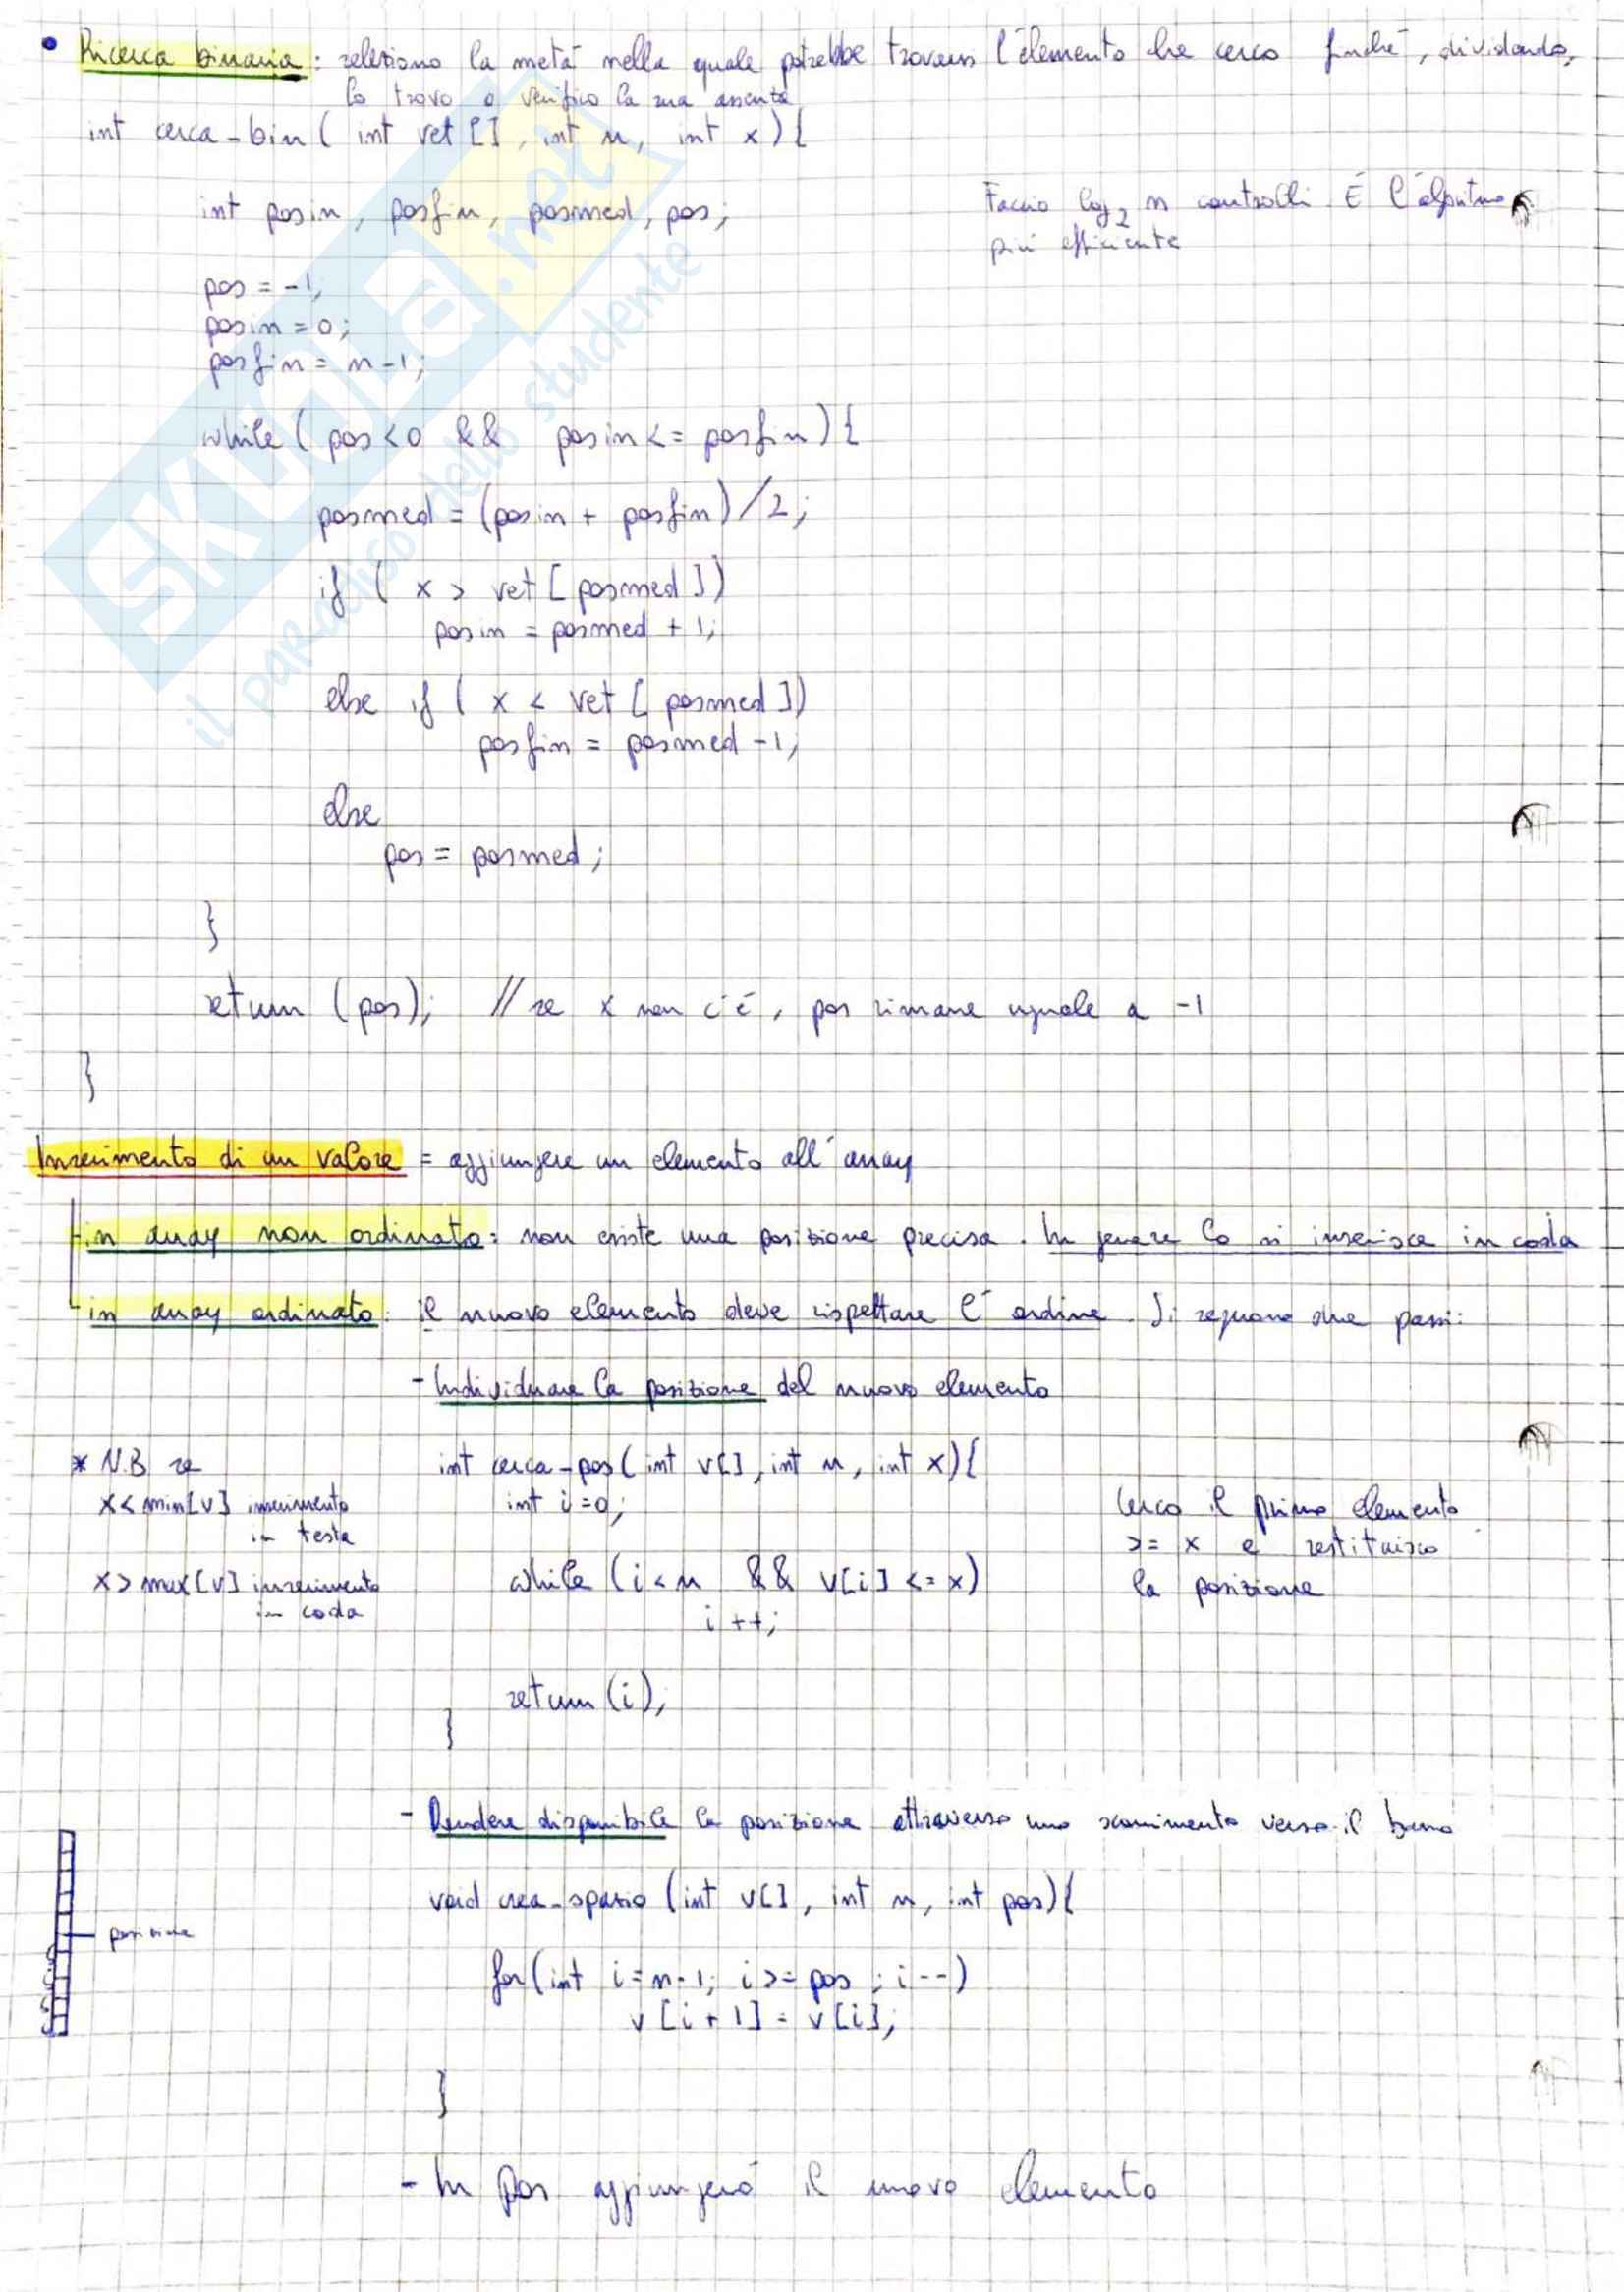 • Ricerca binaria: seleziono la metà nella quale potrebbe trovarsi l'elemento che cerco finché, dividendo,
lo trovo o verifico la sua assenza
int cerca-bin ( int vet [], int n, int x) {
int posin, posfin, posmed, pos;
Faccio log₂ n controlli. É l'algoritmo
più efficiente
pos = -1;
posin = 0;
posfin = n-1;
while ( pos < 0 && posin <= posfin) {
posmed = (posin + posfin)/2;
if ( x > vet [ posmed ])
posin = posmed + 1;
else if ( x < vet [ posmed ])
posfin = posmed -1;
else
pos = posmed;
}
return (pos); // se x non c'é, pos rimane uguale a -1
}
Inserimento di un valore = aggiungere un elemento all'array
in array non ordinato: non esiste una posizione precisa. In genere lo si inserisce in coda
in array ordinato: il nuovo elemento deve rispettare l'ordine. Si seguono due passi:
- Individuare la posizione del nuovo elemento
* N.B se
x < min[v] inserimento
in testa
x > max[v] inserimento
in coda
int cerca-pos( int v[], int n, int x) {
int i=0;
while (i < n && v[i] <= x)
i ++;
return (i);
}
Cerco il primo elemento
>= x e restituisco
la posizione
- Rendere disponibile la posizione attraverso uno scorrimento verso il basso
void crea-spazio (int v[], int n, int pos) {
for (int i = n-1; i >= pos ; i--)
v [i + 1] = v [i];
}
posizione
- In pos aggiungerò il nuovo elemento
SKUOLA.net
il paradiso dello studente